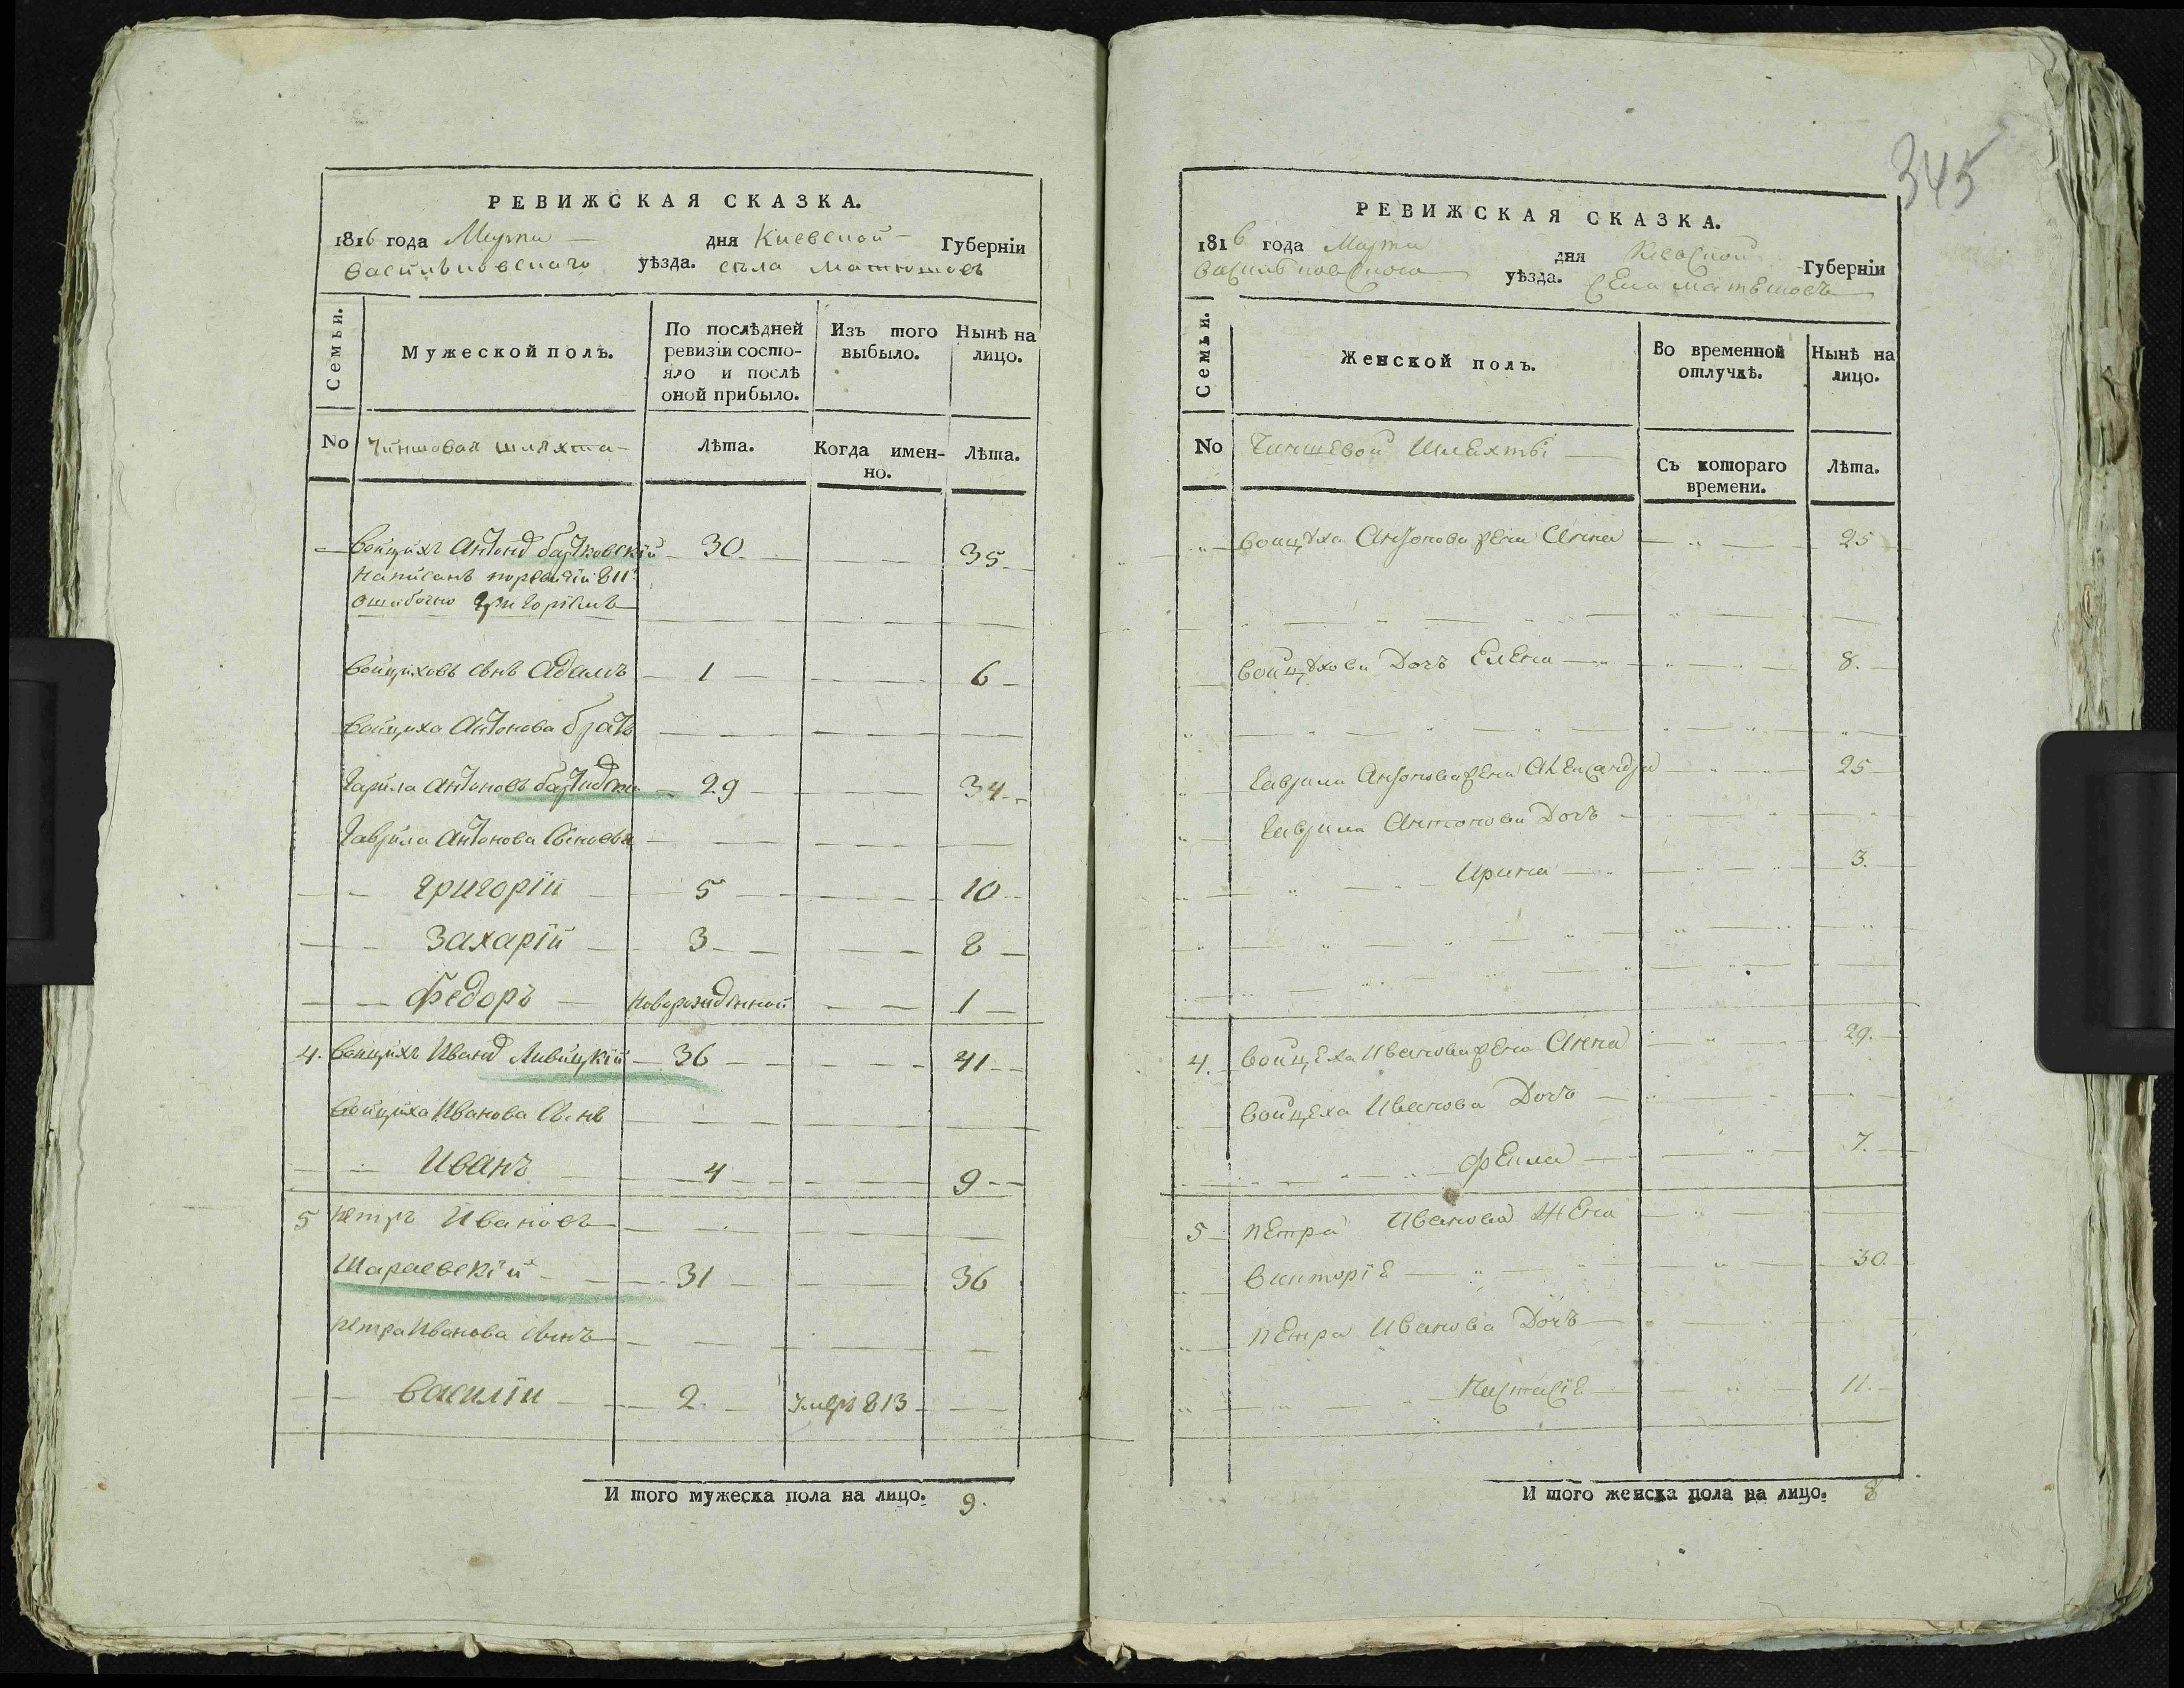 РЕВИЖСКАЯ СКАЗКА.
1816 года Марта дня Киевской Губерніи
Васильковскаго уѣзда. села Матюшовъ
Семьи. Мужеской полъ. По послѣдней ревизіи состояло и послѣ оной прибыло. Изъ того выбыло. Нынѣ на лицо.
No Чиншовая шляхта Лѣта. Когда именно. Лѣта.
Войцихъ Антонов 30 35
написанъ поревизіи 811
ошибочно Григоріемъ
Войциховъ сынъ Адамъ 1 6
Войциха Антонова братъ
Гаврила Антоновъ 29 34
Гаврила Антонова сыновья
Григорій 5 10
Захарій 3 8
Федоръ новорожденной 1
4. Войцихъ Иванов Ливицкій 36 41
Войциха Иванова сынъ
Иванъ 4 9
5 Петръ Ивановъ
Шараевскій 31 36
Петра Иванова сынъ
Василій 2 умеръ 813
И того мужеска пола на лицо. 9.
345
РЕВИЖСКАЯ СКАЗКА.
1816 года Марта дня Киевской Губерніи
Васильковского уѣзда. села Матюшовъ
Семьи. Женской полъ. Во временной отлучкѣ. Нынѣ на лицо.
No Чиншевой Шляхты Съ котораго времени. Лѣта.
Войцѣха Антонова жена Анна 25
Войцѣхова Дочъ Елена 8.
Гаврила Антонова жена Александра 25
Гаврила Антонова Дочъ
Ирина 3.
4. Войцеха Иванова жена Анна 29.
Войцеха Иванова Дочъ
7.
5 Петра Иванова Жена
Викторіе 30.
Петра Иванова Дочъ
Настасіе 11.
И того женска пола на лицо. 8